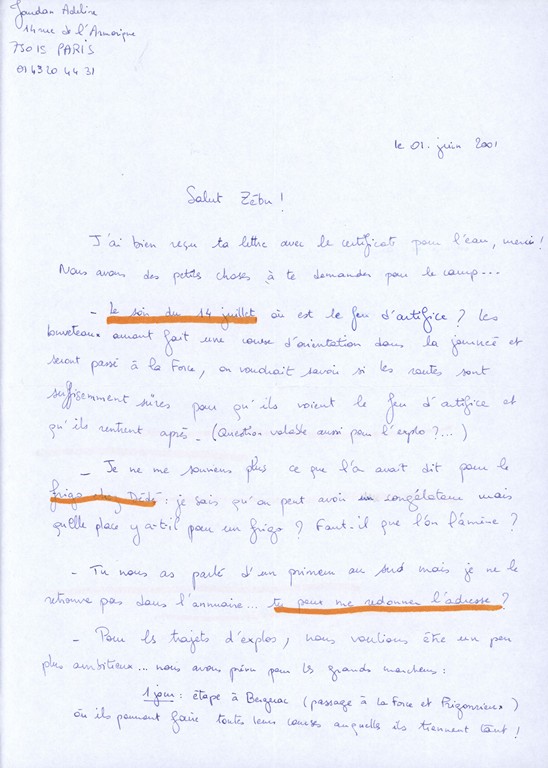 Jaudan Adeline
14 rue de l'Armorique
75015 PARIS
01 43 20 44 31
le 01. juin 2001
Salut Zébu !
J'ai bien reçu ta lettre avec le certificats pour l'eau, merci !
Nous avons des petits choses à te demander pour le camp...
- Le soir du 14 juillet où est le feu d'artifice ? Les
louveteaux auront fait une course d'orientation dans la journée et
seront passé à la Force, on voudrait savoir si les routes sont
suffisemment sûres pour qu'ils voient le feu d'artifice et
qu'ils rentrent après. (Question valable aussi pour l'explo ?...)
- Je ne me souviens plus ce que l'on avait dit pour le
frigo chez Dédé : je sais qu'on peut avoir un congélateur mais
quelle place y a-t-il pour un frigo ? Faut-il que l'on l'amène ?
- Tu nous as parlé d'un primeur au sud mais je ne le
retrouve pas dans l'annuaire... tu peux me redonner l'adresse ?
- Pour les trajets d'explos, nous voulions être un peu
plus ambitieux... nous avons prévu pour les grands marcheurs :
1 jour : étape à Bergerac (passage à la Force et Prigonrieux)
où ils pourront faire toutes leurs courses auxquelles ils tiennent tant !